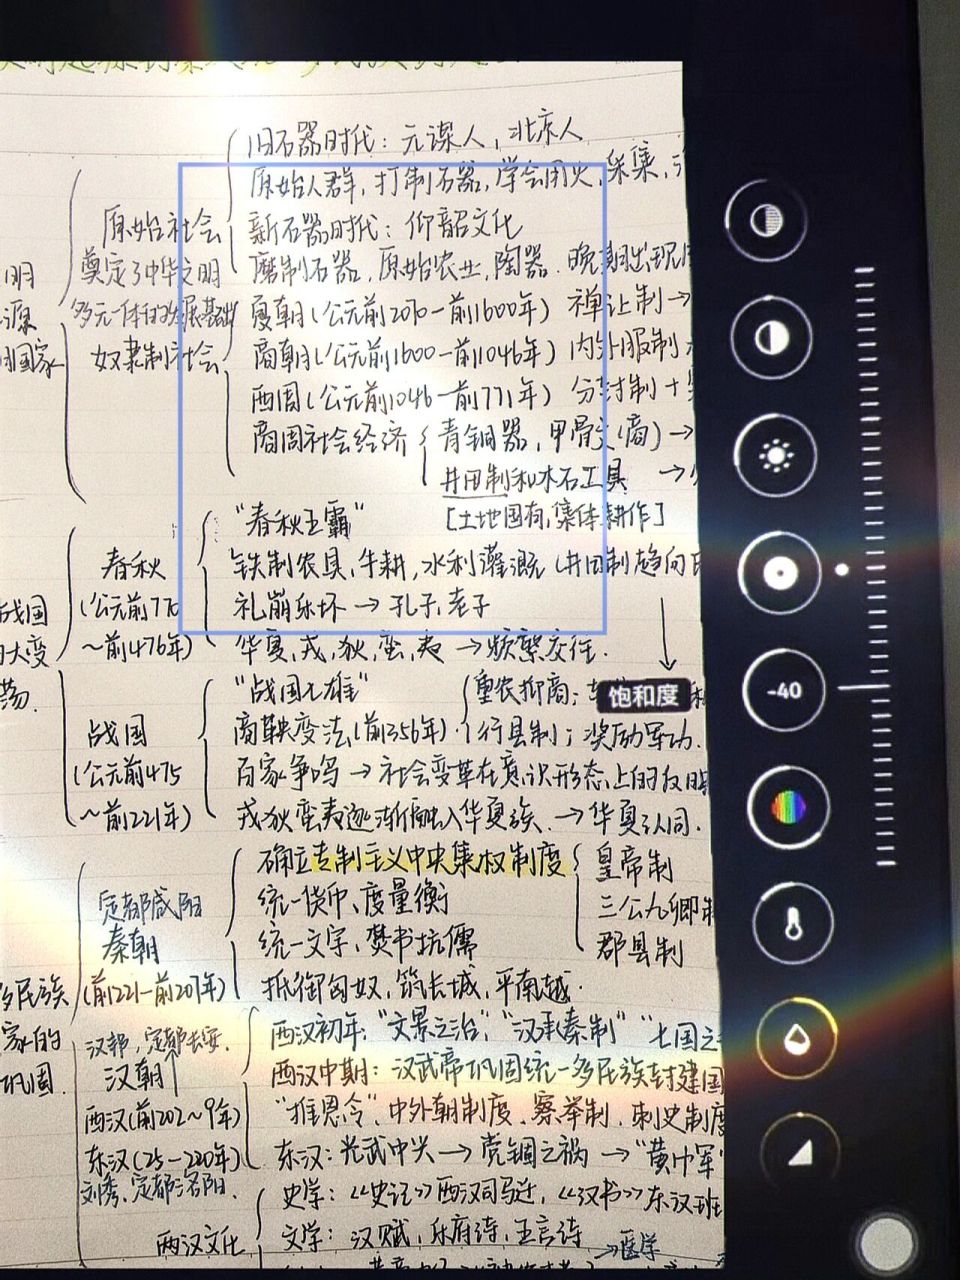 旧石器时代：元谋人，北京人
原始人群，打制石器，学会用火，采集，
原始社会
新石器时代：仰韶文化
奠定了中华文明
磨制石器，原始农业，陶器．晚期出现
多元一体的发展基础
夏朝（公元前2070－前1600年）禅让制→
奴隶制社会
商朝（公元前1600－前1046年）内外服制
西周（公元前1046－前771年）分封制＋
商周社会经济
青铜器，甲骨文（商）→
井田制和木石工具 →
［土地国有，集体耕作］
"春秋五霸"
春秋
铁制农具，牛耕，水利灌溉（井田制趋向
（公元前770
礼崩乐坏→孔子，老子
～前476年）
华夏，戎，狄，蛮，夷→频繁交往．
"战国七雄"
重农抑商；
饱和度
-40
战国
商鞅变法（前356年）．
行县制；奖励军功．
（公元前475
百家争鸣→社会变革在意识形态上的反映
～前221年）
戎狄蛮夷逐渐融入华夏族．→华夏认同．
确立专制主义中央集权制度
皇帝制
定都咸阳
统一货币、度量衡
三公九卿制
秦朝
统一文字，焚书坑儒
郡县制
（前221－前207年）
抵御匈奴，筑长城，平南越．
西汉初年："文景之治"，"汉承秦制" "七国之
定都长安．
汉朝
西汉中期：汉武帝巩固统一多民族封建国
西汉（前202～9年）
"推恩令"，中外朝制度，察举制，刺史制度
东汉（25－220年）
东汉：光武中兴→党锢之祸→"黄巾军"
刘秀，定都洛阳．
史学：《史记》西汉司马迁，《汉书》东汉班
两汉文化
文学：汉赋，乐府诗，五言诗
→医学
明
源
国家
战国
大变
荡．
多民族
家的
巩固．